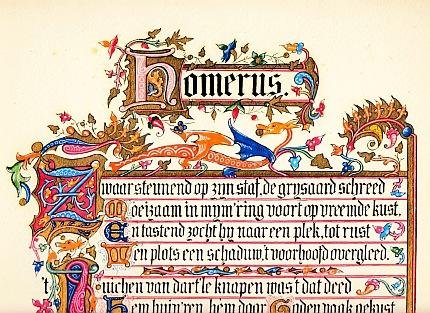 Homerus.
Zwaar steunend op zijn staf, de grysaard schreed
Moeizaam in mym'ring voort op vreemde kust.
En tastend zocht hy naar een plek, tot rust
Wen plots een schaduw, 't voorhoofd overgleed.
't Juichen van dart'le knapen was 't dat deed
Hem huiv'ren, hem door Goden vaak gekust